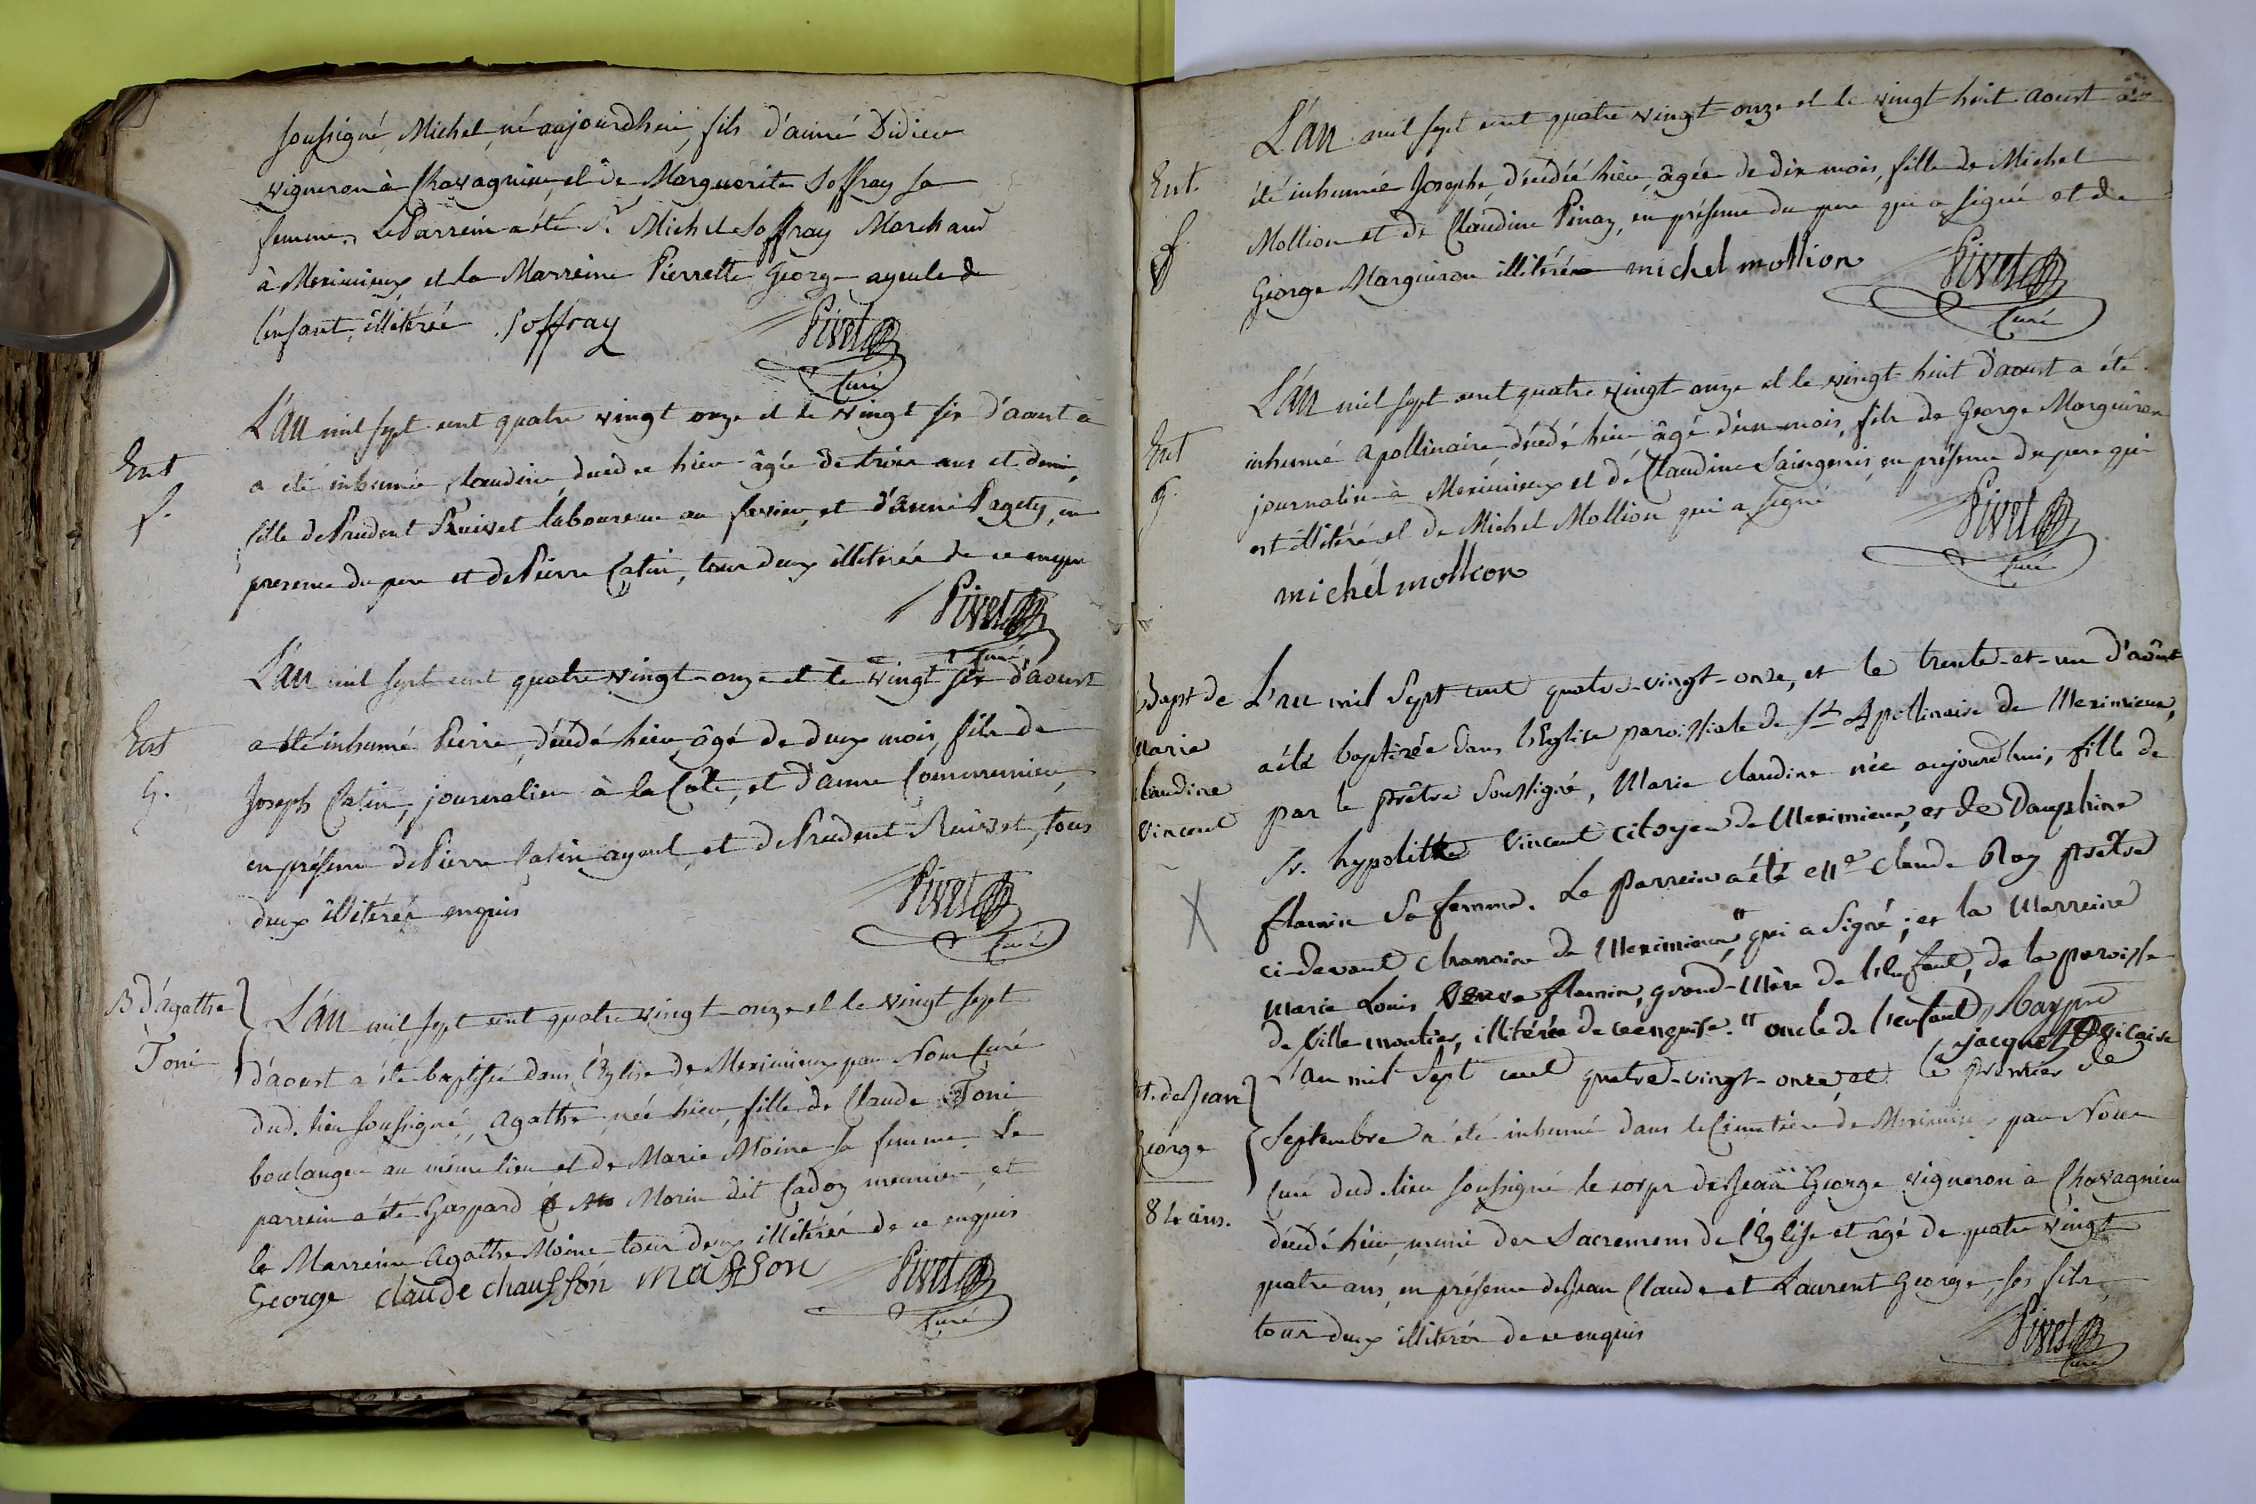 soussigné, Michel, né aujourdhui, fils d'aimé Didier
vigneron à Chavagnieu et de Marguerite Soffray sa
femme. Le Parrein a été Sr. Michel Soffray Marchand
à Meximieux et la Marreine Pierrette George ayeule de
l'enfant, illitérée . Soffray Pivet
Curé
L'an mil sept cent quatre vingt onze et le vingt six d'aoust a
Ent a été inhumée Claudine décédée hier âgée de trois ans et demi,
f. fille de Prudent Ruivet laboureur au , et d'anne Pagety, en
presence du pere et de Pierre Catin, tous deux illiterés de ce enquis
Pivet
Curé
L'an mil sept cent quatre vingt-onze et le vingt six d'aoust
Ent a été inhumé Pierre, décédé hier, âgé de deux mois, fils de
g. Joseph Catin, journalier à la Côte, et d'anne
en présence de Pierre Catin ayeul, et de Prudent Ruivet, tous
deux illitérés enquis Pivet
Curé
B d'agathe L'an mil sept cent quatre vingt-onze et le vingt sept
Toni d'aoust a été baptisée dans l'Eglise de Meximieux par Nous Curé
dud. lieu soussigné, Agathe, née hier, fille de Claude Toni
boulanger au même lieu et de Marie Moine sa femme. Le
parrein a été Gaspard Morin dit Cadoz meunier, et
la Marreine Agathe Moine tous deux illitérés de ce enquis
George claude chausson masson Pivet
Curé
L'an mil sept cent quatre vingt-onze et le vingt huit aoust a
Ent. été inhumée Josephe, décédée hier, âgée de dix mois, fille de Michel
f. Mollion et de Claudine Pinaz, en présence du pere qui a signé et de
George Marguiron illitéré michel mollion Pivet
Curé
L'an mil sept cent quatre vingt-onze et le vingt-huit d'aoust a été
Ent inhumé Apollinaire décédé hier âgé d'un mois, fils de George Marguiron
g. journalier à Meximieux et de Claudine Saingenis, en présence du pere qui
est illitéré et de Michel Mollion qui a signé Pivet
Curé
michél mollion
Bapt de L'an mil Sept cent quatre-vingt-onze, et le trente-et-un d'août
Marie a été baptisée dans l'Eglise paroissiale de St Apollinaire de Meximieux,
Claudine par le prêtre soussigné, Marie Claudine née aujourd'hui, fille de
Vincent Sr. hypolitte Vincent citoyen de Meximieux, et de Dauphine
flamin Sa femme. Le Parrein a été Mre Claude Roy prêtre
ci-devant chanoine de Meximieux " qui a Signé ; et la Marreine
Marie Louis Veuve flamin, grand-Mère de l'Enfant, de la paroisse
de Ville moutier, illitérée de ce enquise. " oncle de l'enfant, Roy pre
jacquet vicaire
Et. de Jean L'an mil Sept cent quatre-vingt-onze, et le premier de
George Septembre a été inhumé dans le Cimetière de Meximieux par Nous
Curé dud. lieu soussigné le corps de Jean George vigneron à Chavagnieu
84 ans. décédé hier, muni des Sacremens de l'Eglise et âgé de quatre vingt
quatre ans, en présence de Jean Claude et Laurent George, ses fils,
tous deux illiterés de ce enquis Pivet
Curé